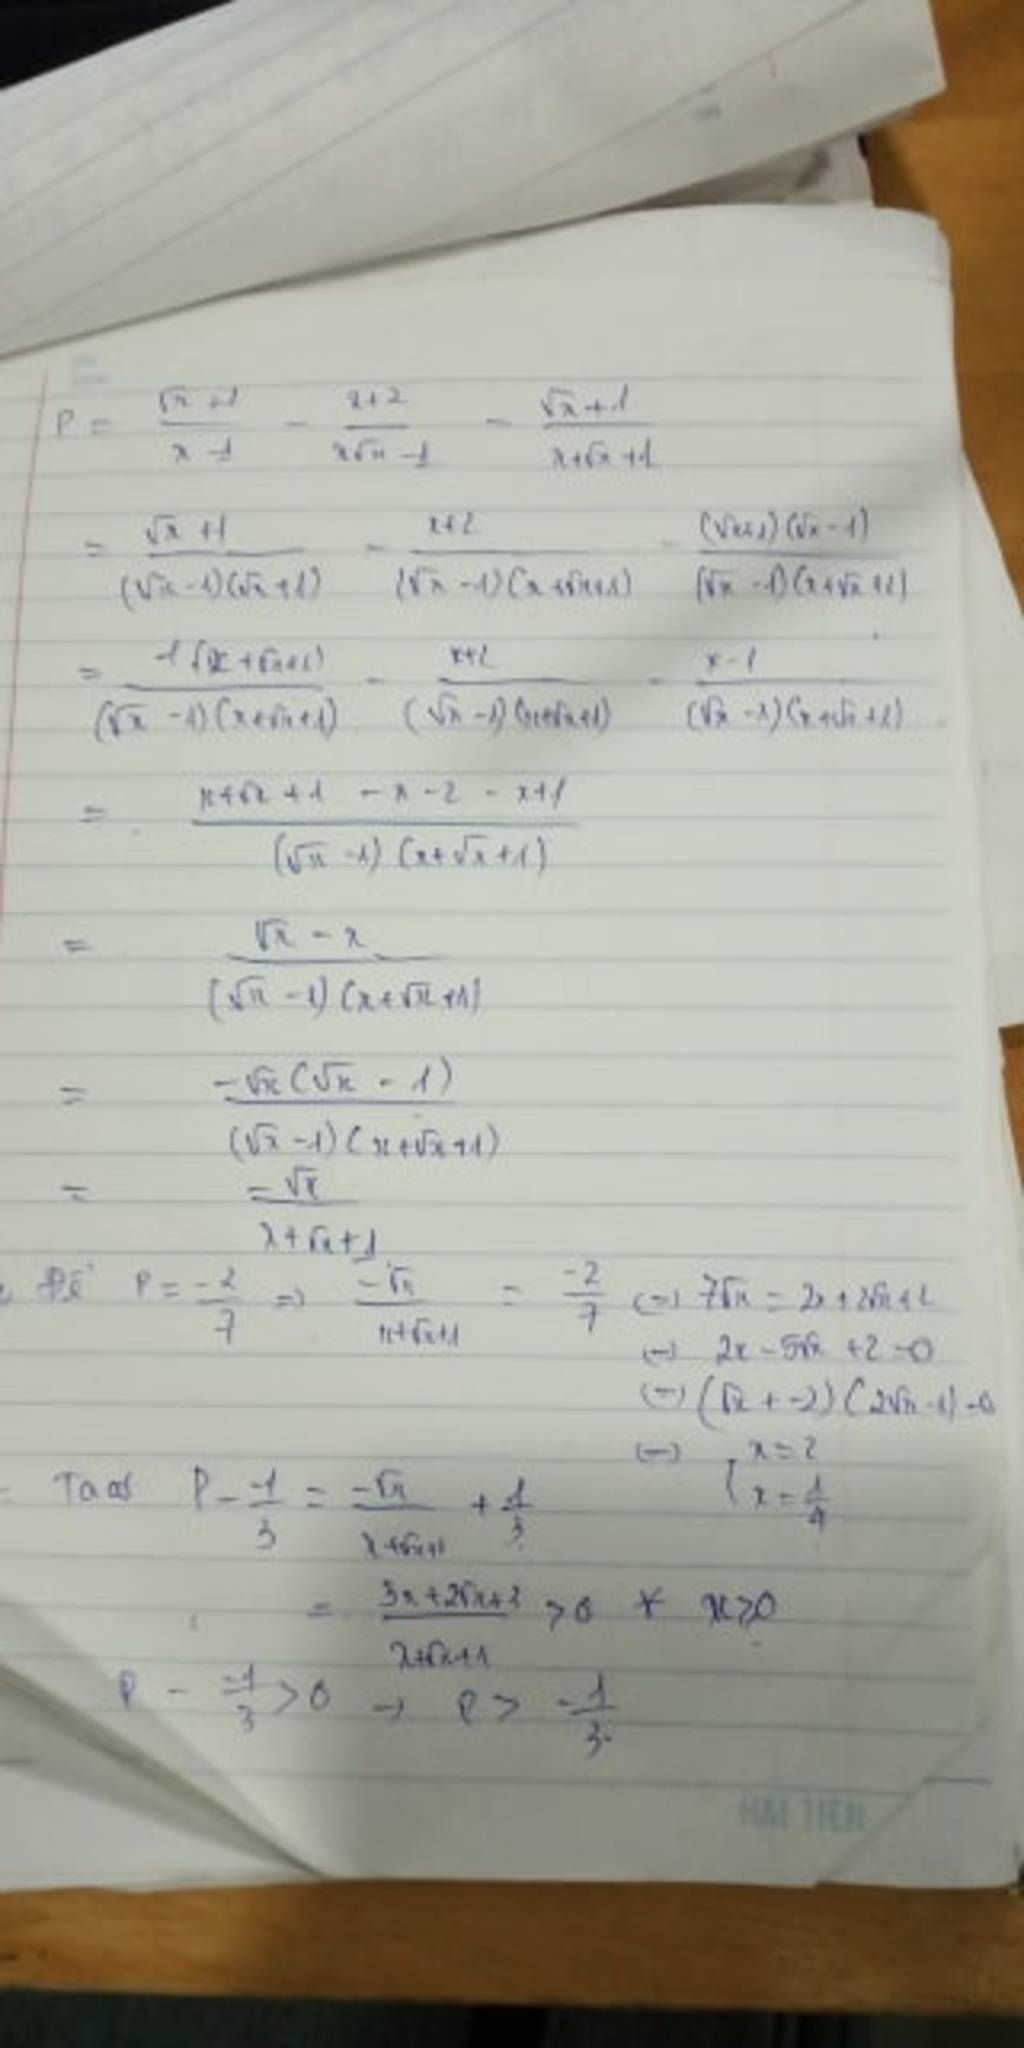 P = \frac{√x+1}{x-1} - \frac{x+2}{x√x-1} - \frac{√x+1}{x+√x+1}
= \frac{√x+1}{(√x-1)(√x+1)} - \frac{x+2}{(√x-1)(x+√x+1)} - \frac{(√x+1)(√x-1)}{(√x-1)(x+√x+1)}
= \frac{1(x+√x+1)}{(√x-1)(x+√x+1)} - \frac{x+2}{(√x-1)(x+√x+1)} - \frac{x-1}{(√x-1)(x+√x+1)}
= \frac{x+√x+1-x-2-x+1}{(√x-1)(x+√x+1)}
= \frac{√x-x}{(√x-1)(x+√x+1)}
= \frac{-√x(√x-1)}{(√x-1)(x+√x+1)}
= \frac{-√x}{x+√x+1}
Để P = \frac{-2}{7} => \frac{-√x}{x+√x+1} = \frac{-2}{7} (=) 7√x = 2x+2√x+2
(=) 2x-5√x+2=0
(=) (√x+-2)(2√x-1)=0
(=) [ x=2
x=\frac{1}{4}
P - \frac{-1}{3} = \frac{-√x}{x+√x+1} + \frac{1}{3}
= \frac{3x+2√x+2}{x+√x+1} >0 x≥0
P - \frac{-1}{3} >0 → P > -\frac{1}{3}
HẢI TIẾN